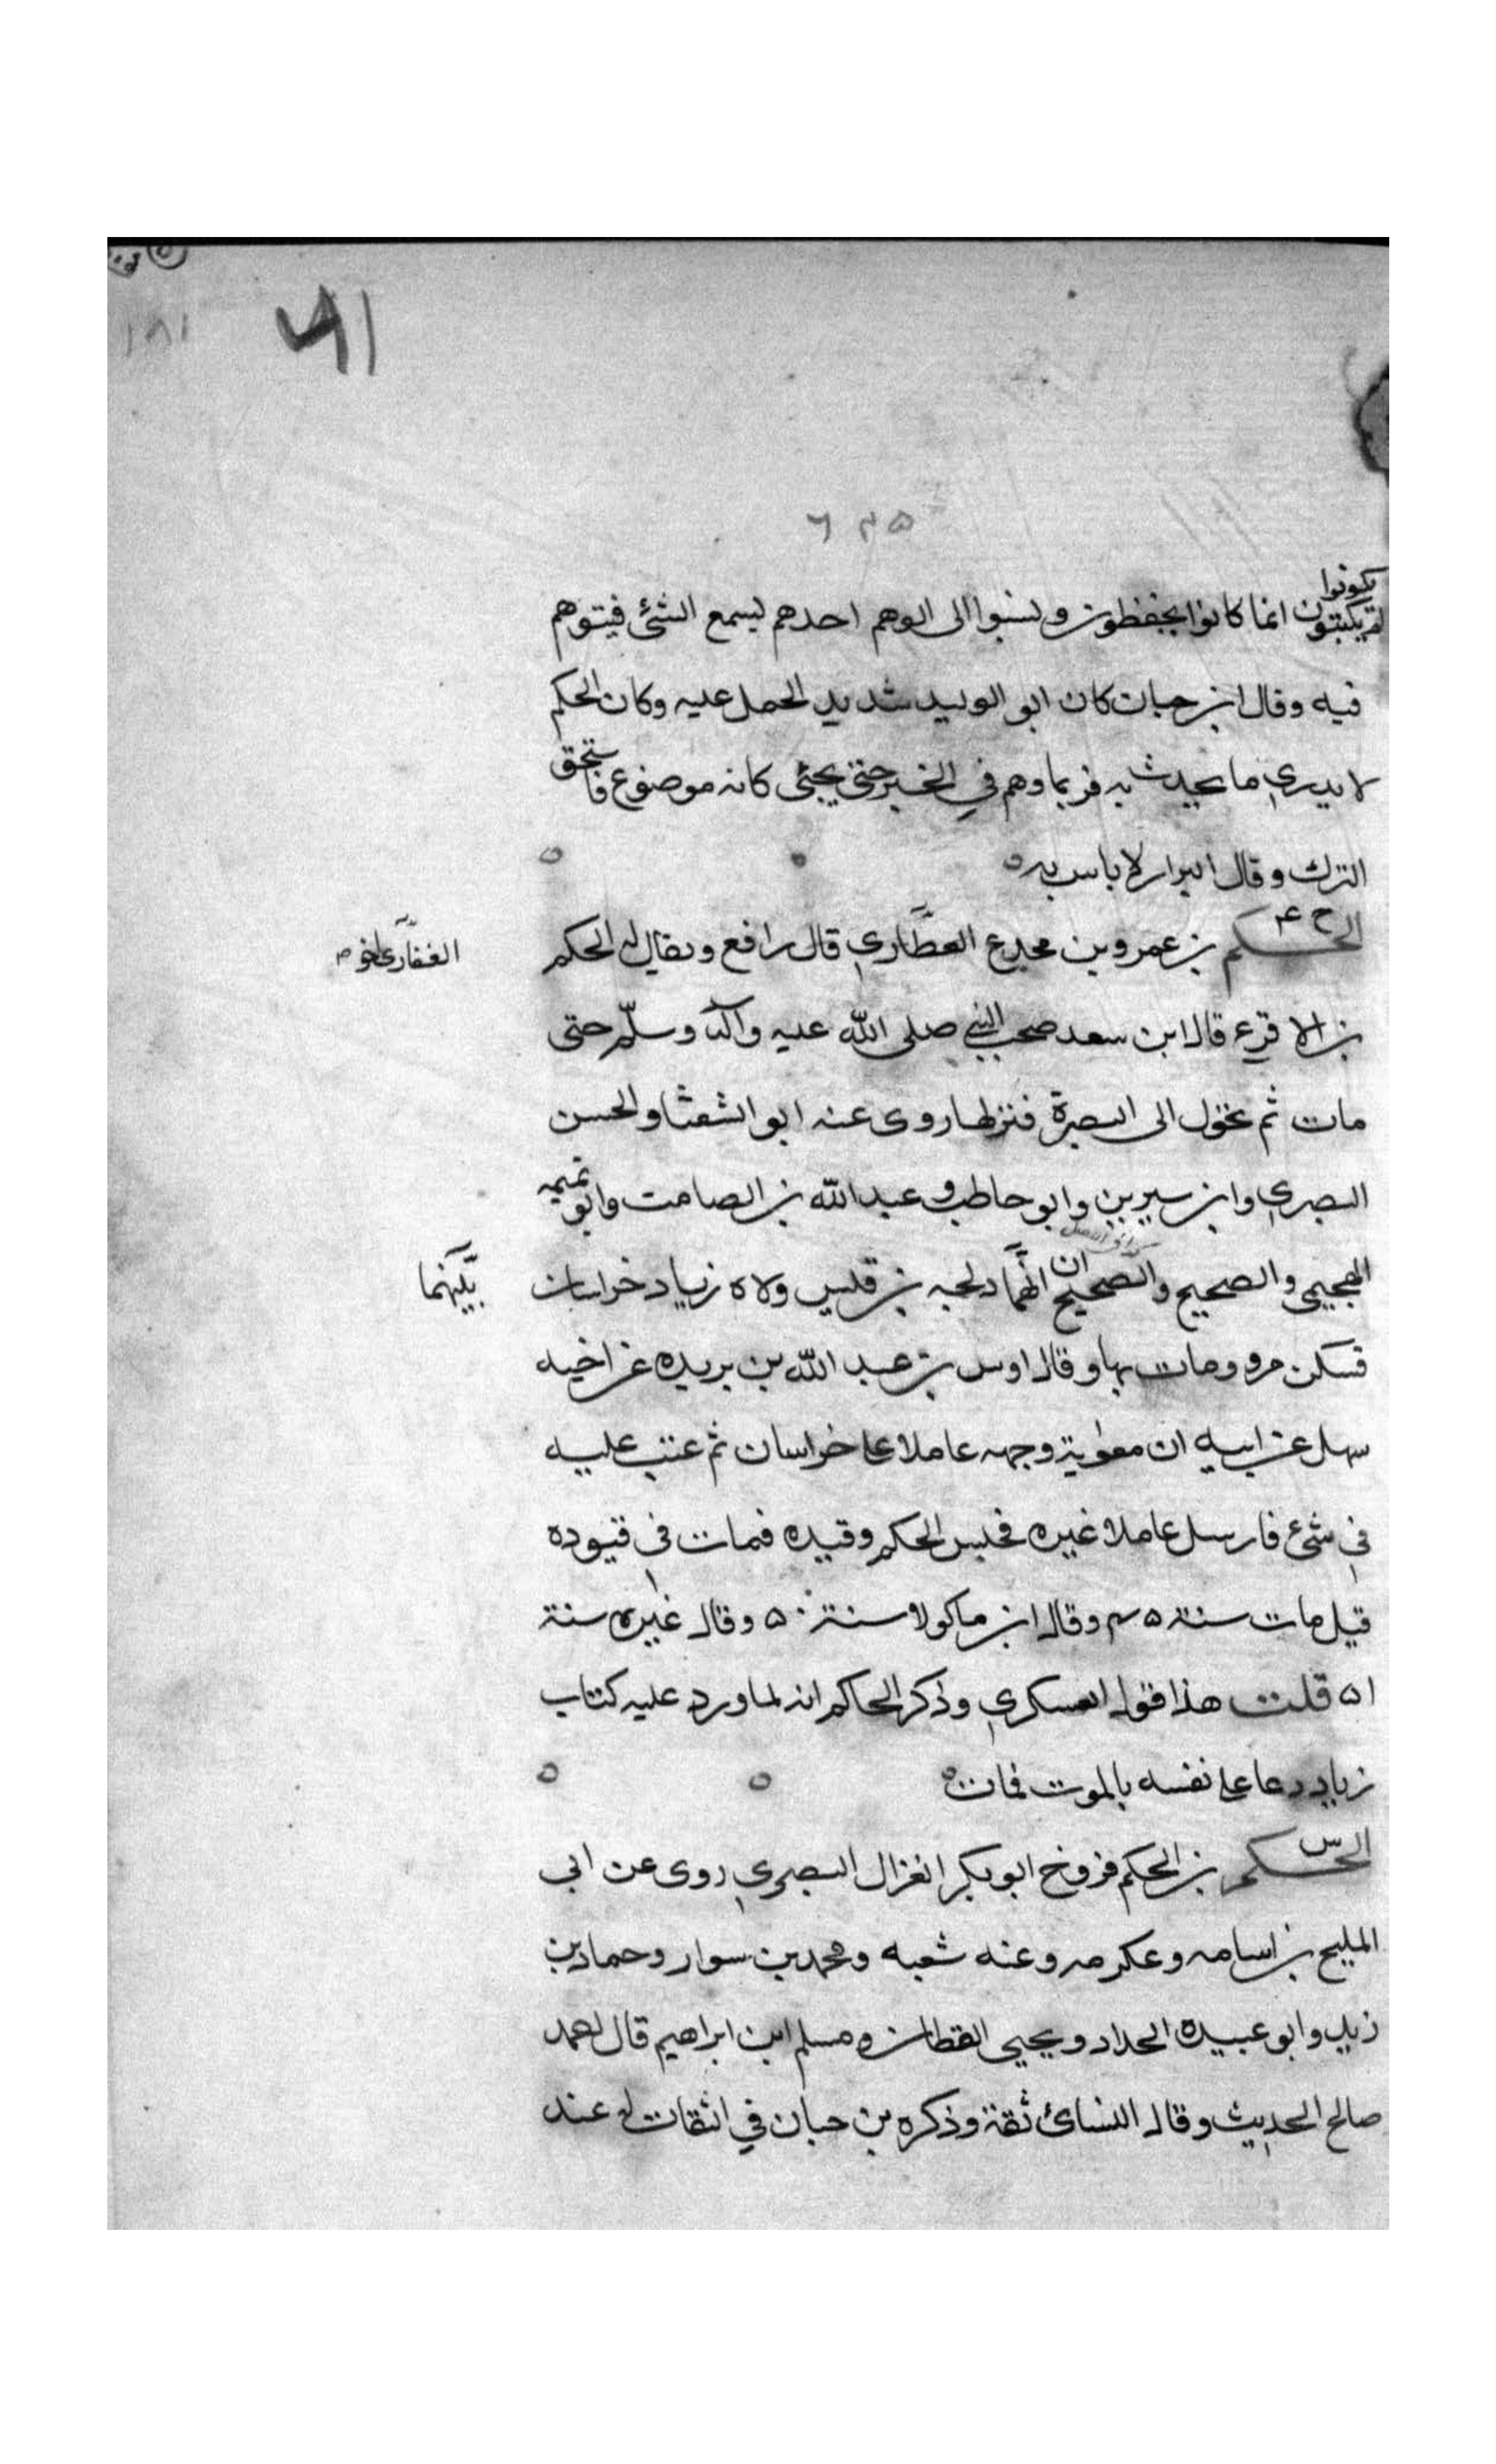 ٤١
١٨١
٦٣٥
يكونوا
لم يكتبون انما كانوا يحفظون ونسبوا الى الوهم احدهم ليسمع الشئ فيتوهم
فيه وقال ابن حبان كان ابو الوليد شديد الحمل عليه وكان الحكم
لا يدري ما يحدث به فربما وهم في الخبر حتى يجئ كانه موضوع فاستحق
الترك وقال البزار لا باس به
الحكم بن عمرو بن مجدع العطاري قال رافع ويقال له الحكم
الغفاري اخو
بن الاقرع قال ابن سعد صحب النبي صلى الله عليه وآله وسلم حتى
مات ثم تحول الى البصرة فنزلها روى عنه ابو الشعثا والحسن
البصري وابن سيرين وابو حاطب وعبد الله بن الصامت وابو تميمه
الهجيمي والصحيح والصحيح ان بن قيس ولاه زياد خراسان
بينهما
فسكن مرو ومات بها وقال اوس بن عبد الله بن بريده عن اخيه
سهل عن ابيه ان معوية وجهه عاملا على خراسان ثم عتب عليه
في شئ فارسل عاملا غيره فحبس الحكم وقيده فمات في قيوده
قيل مات سنة ٤٥ وقال ابن ماكولا سنة ٥٠ وقال غيره سنة
٥١ قلت هذا قول العسكري وذكر الحاكم انه لما ورد عليه كتاب
زياد دعا على نفسه بالموت فمات
الحكم بن الحكم فروخ ابو بكر الغزال البصري روى عن ابي
المليح بن اسامه وعكرمه وعنه شعبه ومحمد بن سوار وحماد بن
زيد وابو عبيده الحداد ويحيى القطان ومسلم ابن ابراهيم قال احمد
صالح الحديث وقال النسائ ثقة وذكره بن حبان في الثقات له عند